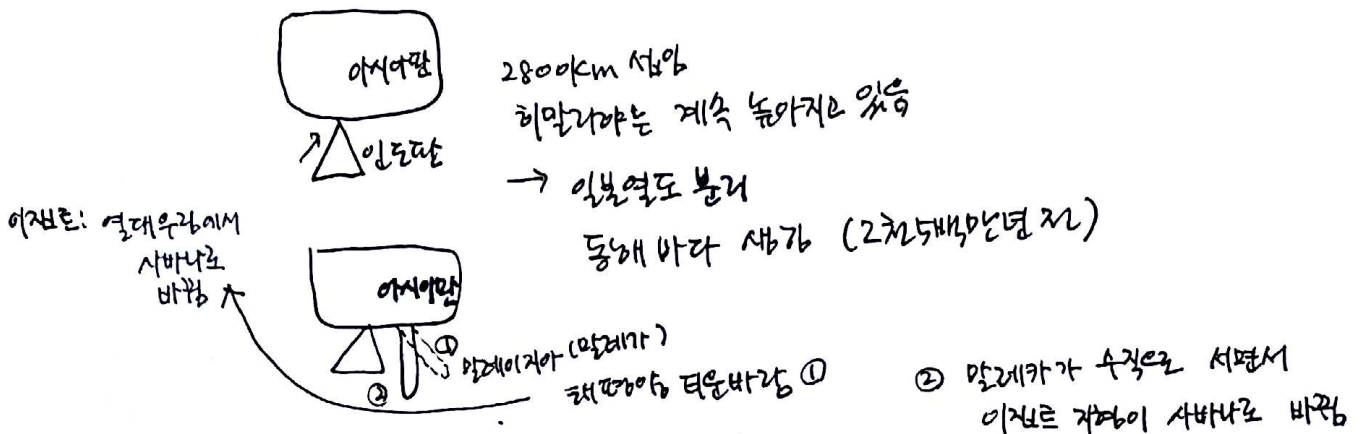 아시아판
인도판
2800km 섭입
히말라야는 계속 높아지고 있음
→ 일본열도 분리
동해 바다 생김 (2천5백만년 전)
이집트: 열대우림에서
사바나로
바뀜
아시아판
①
②
말레이지아 (말레카)
태평양 더운바람 ①
② 말레카가 수직으로 서면서
이집트 지형이 사바나로 바뀜